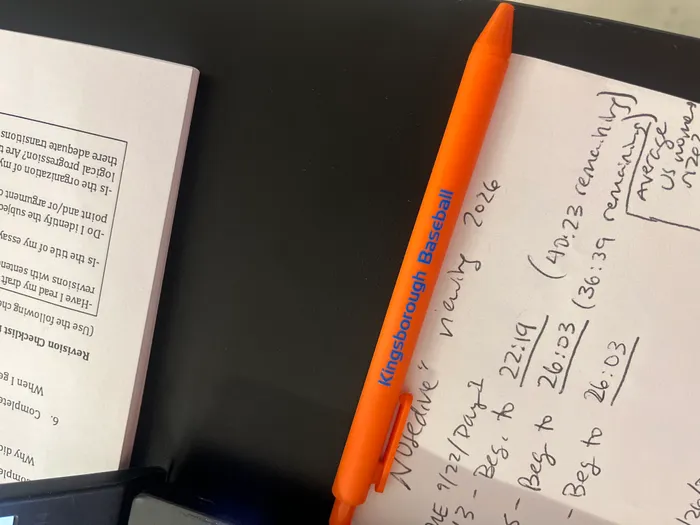 -Have I read my draft
revisions with senten
-Is the title of my essay
-Do I identify the subjec
point and/or argument o
-Is the organization of my
logical progression? Are t
there adequate transitions
Revision Checklist
(Use the following che
When I ge
6. Complete
Why did
omplet
Kingsborough Baseball
"Nosedive" viewing 2026
ME 9/22/Day 1
13 - Beg. to 22:19
- Beg to 26:03 (40:23 remaining)
- Beg to 26:03 (36:39 remaining)
Average
US women
size?